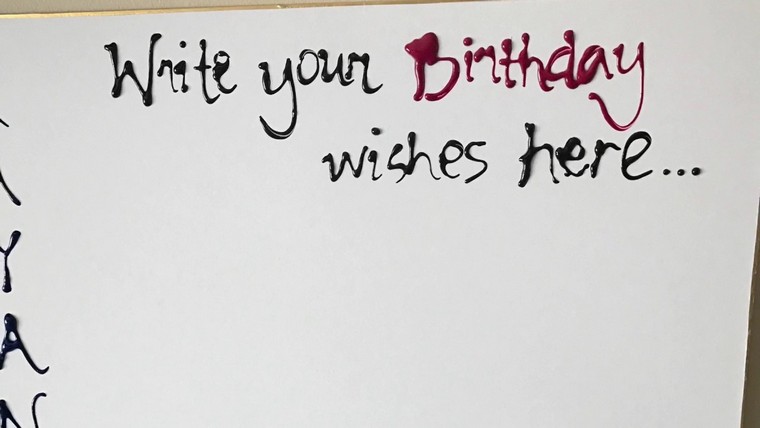 Write your Birthday
wishes here...
Y
A
N